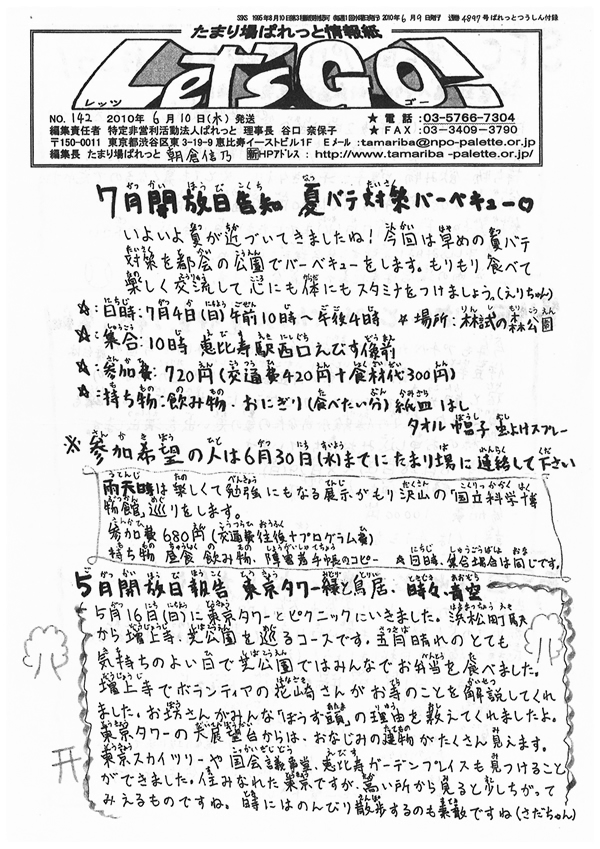 SSKS 1995年8月10日第3種郵便物認可 (毎週1回木曜日発行) 2010年6月9日発行 通巻4897号ぱれっとつうしん付録
たまり場ぱれっと情報紙
Let'sGO!
レッツ ゴー
NO.142 2010年 6月10日(木) 発送 ★電話:03-5766-7304
編集責任者 特定非営利活動法人ぱれっと 理事長 谷口 奈保子 ★FAX:03-3409-3790
〒150-0011 東京都渋谷区東3-19-9恵比寿イーストビル1F Eメール:tamariba@npo-palette.or.jp/
編集長 たまり場ぱれっと 朝倉信乃 新HPアドレス:http://www.tamariba-palette.or.jp/
7月開放日告知 夏バテ対策バーベキュー♡
いよいよ夏が近づいてきましたね!今回は早めの夏バテ
対策を都会の公園でバーベキューをします。もりもり食べて
楽しく交流して心にも体にもスタミナをつけましょう。(えりちゃん)
☆:日時:7月4日(日)午前10時~午後4時 ☆場所:林試の森公園
☆:集合:10時 恵比寿駅西口えびす像前
☆:参加費:720円(交通費420円+食材代300円)
☆:持ち物:飲み物・おにぎり(食べたい分)紙皿 はし
タオル 帽子 虫よけスプレー
※参加希望の人は6月30日(水)までにたまり場に連絡して下さい
雨天時は楽しくて勉強にもなる展示がもり沢山の「国立科学博
物館」巡りをします。
参加費680円(交通費往復+プログラム費)
持ち物 昼食 飲み物、障害者手帳のコピー ☆日時、集合場合は同じです。
5月開放日報告 東京タワー緑と鳥居、時々、青空
5月16日(日)に東京タワーとピクニックにいきました。浜松町駅
から増上寺、芝公園を巡るコースです。五月晴れのとても
気持ちのよい日で芝公園ではみんなでお弁当を食べました。
増上寺でボランティアの花崎さんがお寺のことを解説してくれ
ました。お坊さんがみんな「ぼうず頭」の理由を教えてくれましたよ。
東京タワーの大展望台からは、おなじみの建物がたくさん見えます。
東京スカイツリーや国会議事堂、恵比寿ガーデンプレイスも見つけること
ができました。住みなれた東京ですが、高い所から見ると少しちがって
みえるものですね。時にはのんびり散歩するのも素敵ですね(さだちゃん)